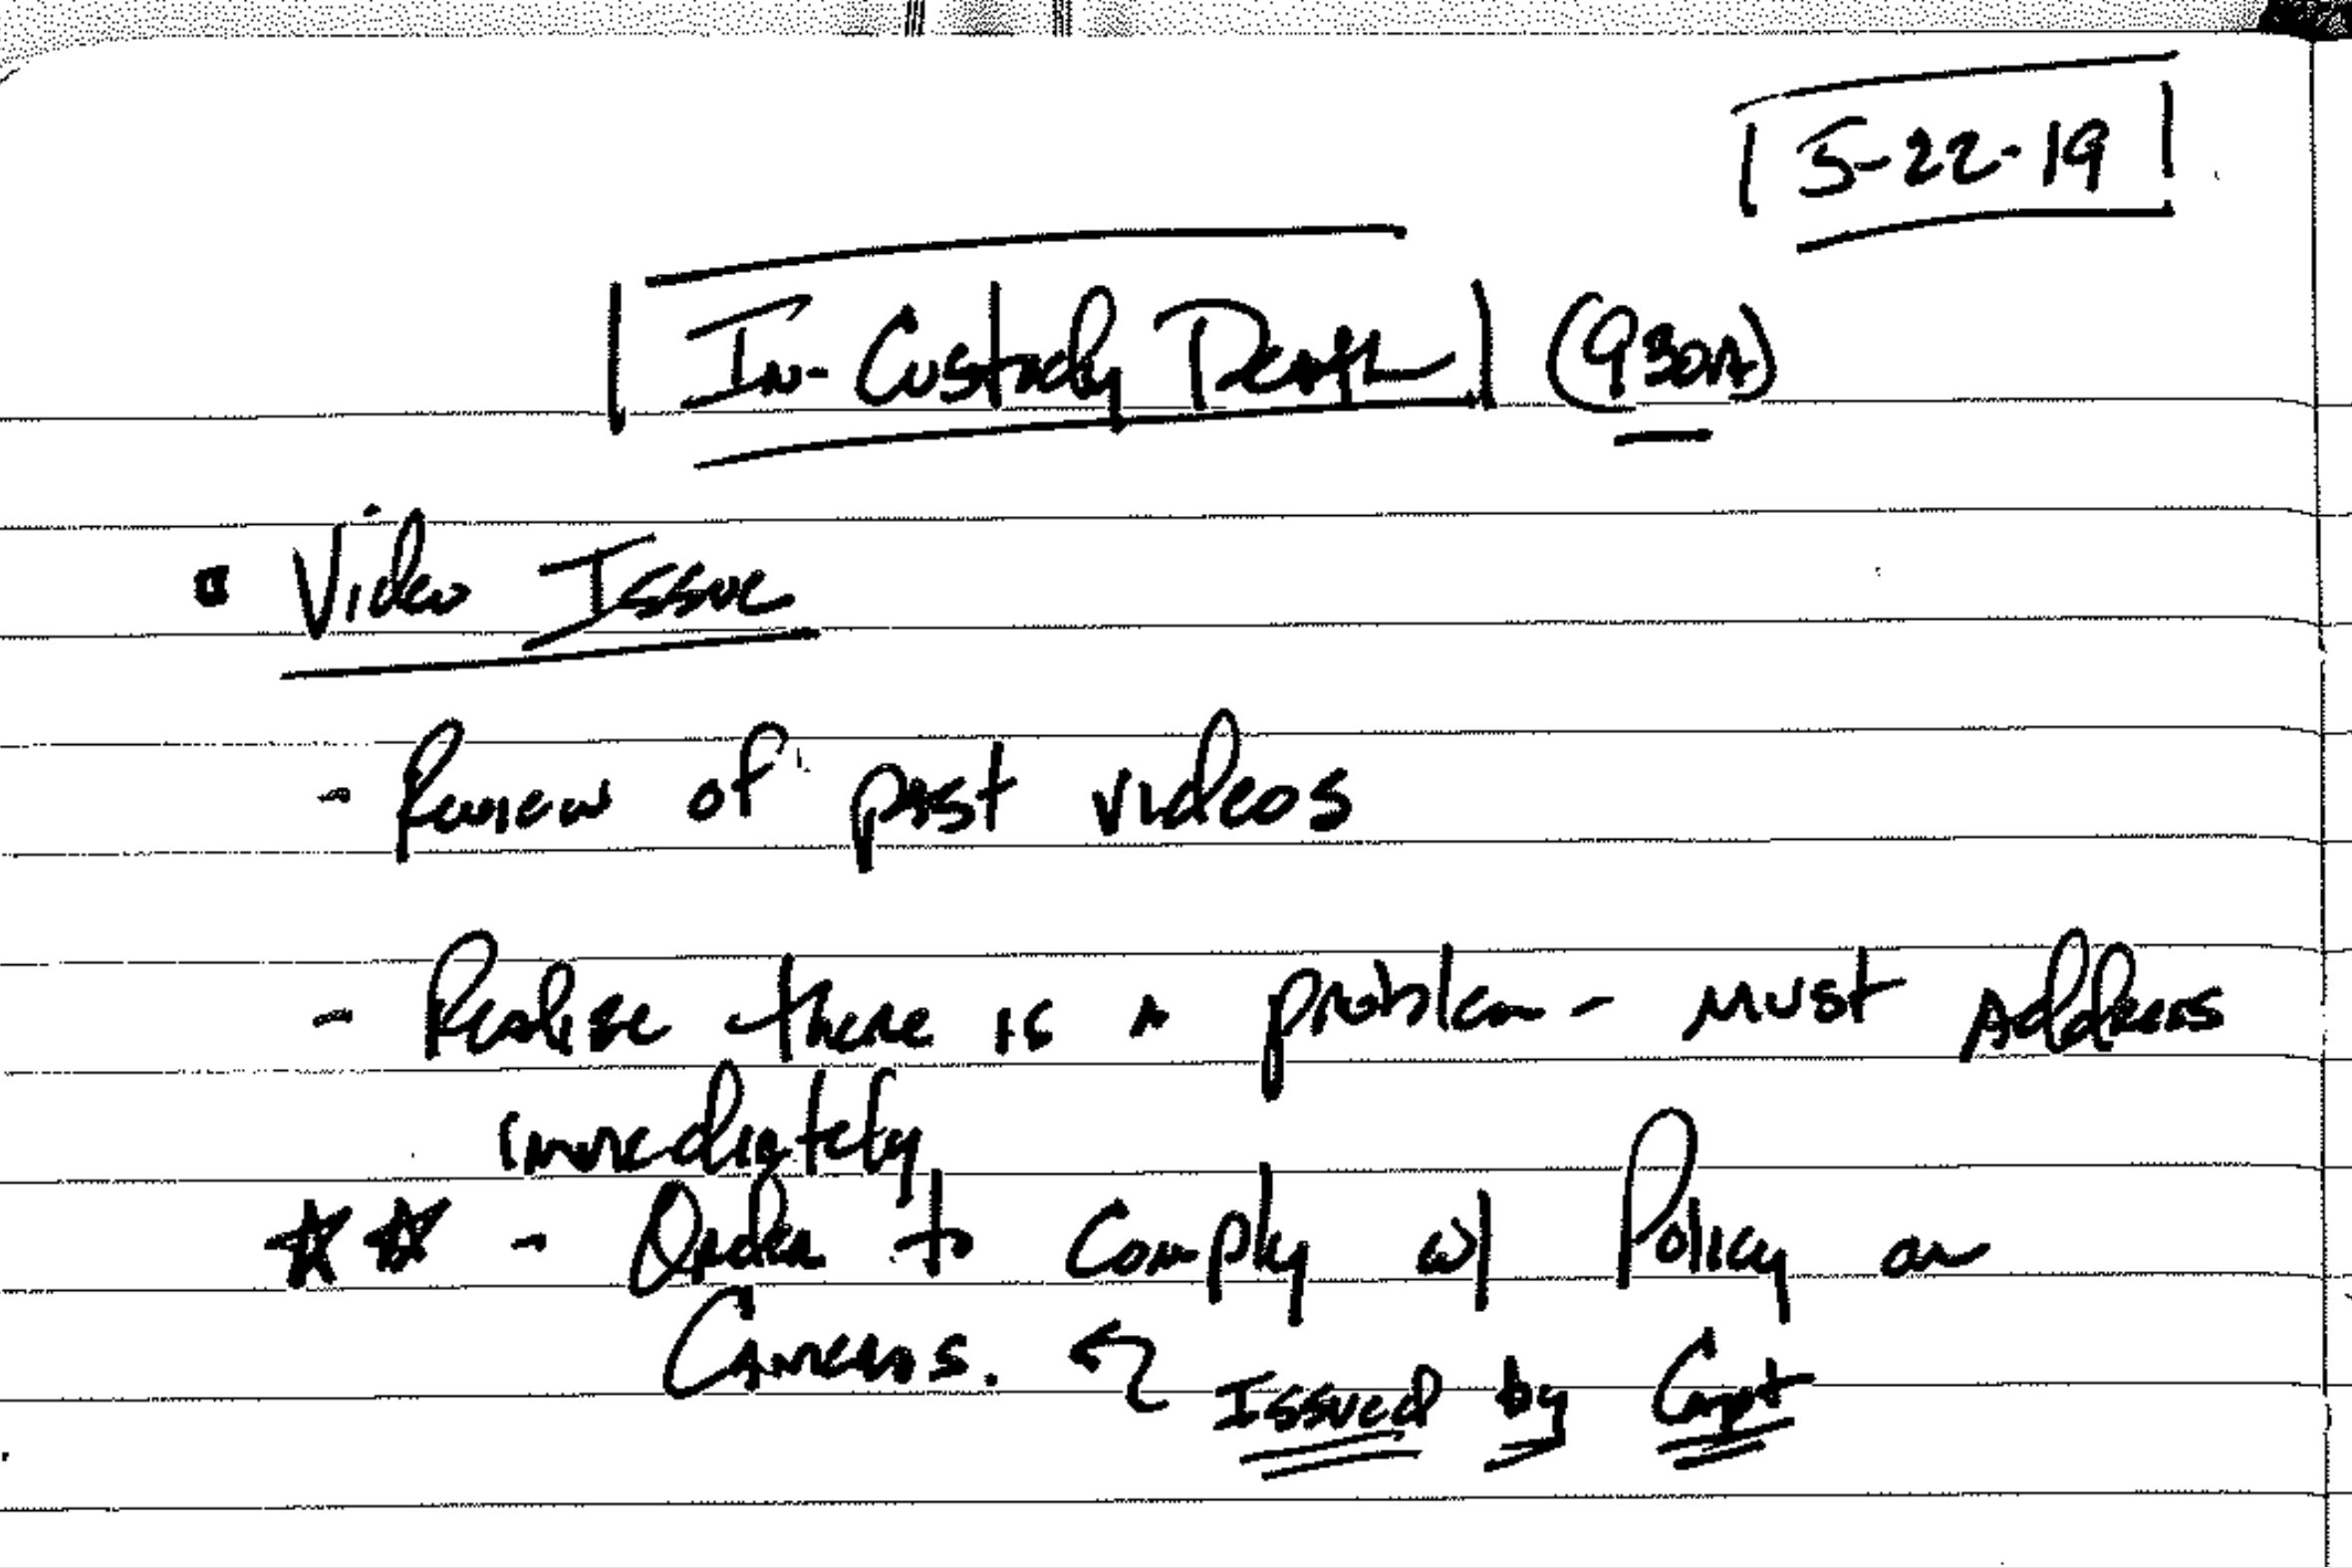 5-22-19
In-Custody Death (930A)
• Video Issue
- Review of past videos
- Realize there is a problem - Must Address
immediately
☆☆ - Order to Comply w/ Policy on
Cameras. Issued by Capt